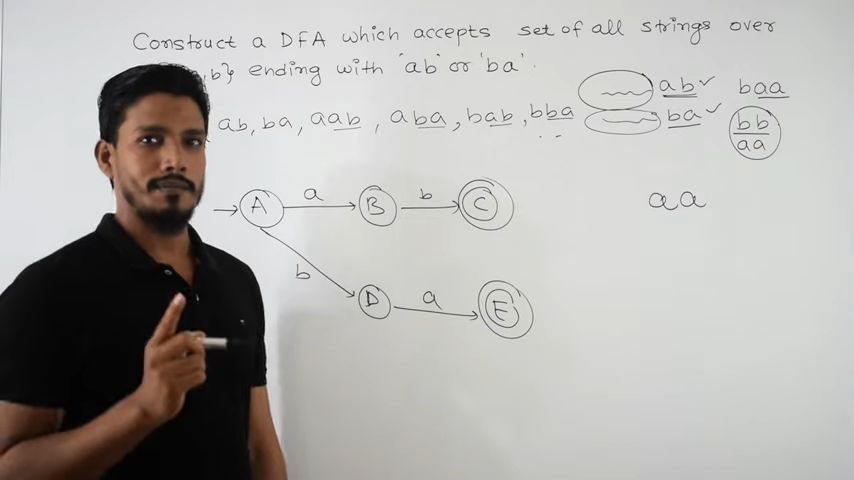 Construct a DFA which accepts set of all strings over
b} ending with 'ab' or 'ba'.
ab, ba, aab, aba, bab, bba
ab✓ baa
ba✓ bb
aa
aa
A a B b C
b
D a E